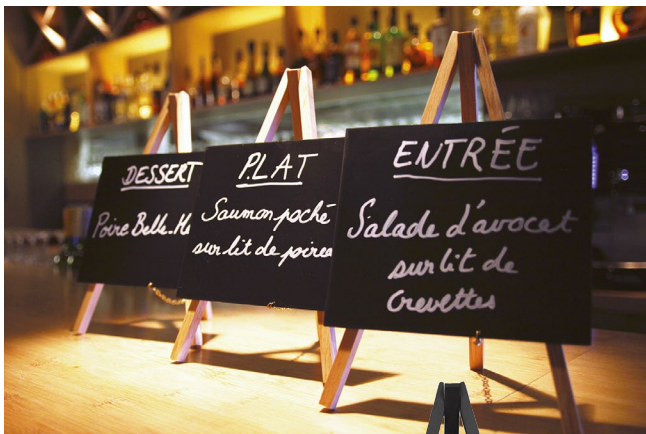 DESSERT
Poire Belle-H
PLAT
Saumon poché
sur lit de poirea
ENTRÉE
Salade d'avocat
sur lit de
Crevettes